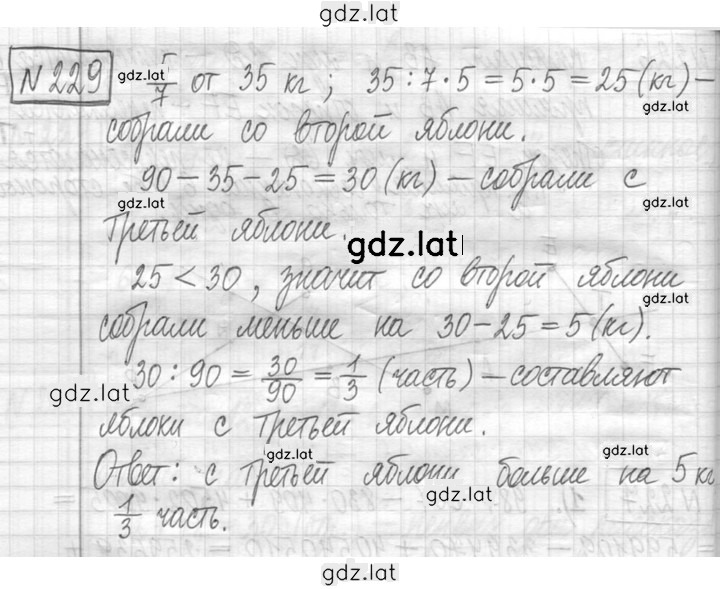 gdz.lat
N 229 gdz.lat 5/7 от 35 кг; 35 : 7 · 5 = 5 · 5 = 25 (кг) –
gdz.lat
собрали со второй яблони.
90 – 35 – 25 = 30 (кг) – собрали с
gdz.lat gdz.lat
третьей яблони.
gdz.lat
25 < 30, значит со второй яблони
gdz.lat
собрали меньше на 30 – 25 = 5 (кг).
30 : 90 = 30/90 = 1/3 (часть) – составляют
gdz.lat
яблоки с третьей яблони.
gdz.lat gdz.lat
Ответ: с третьей яблони больше на 5 кг
gdz.lat
1/3 часть.
gdz.lat